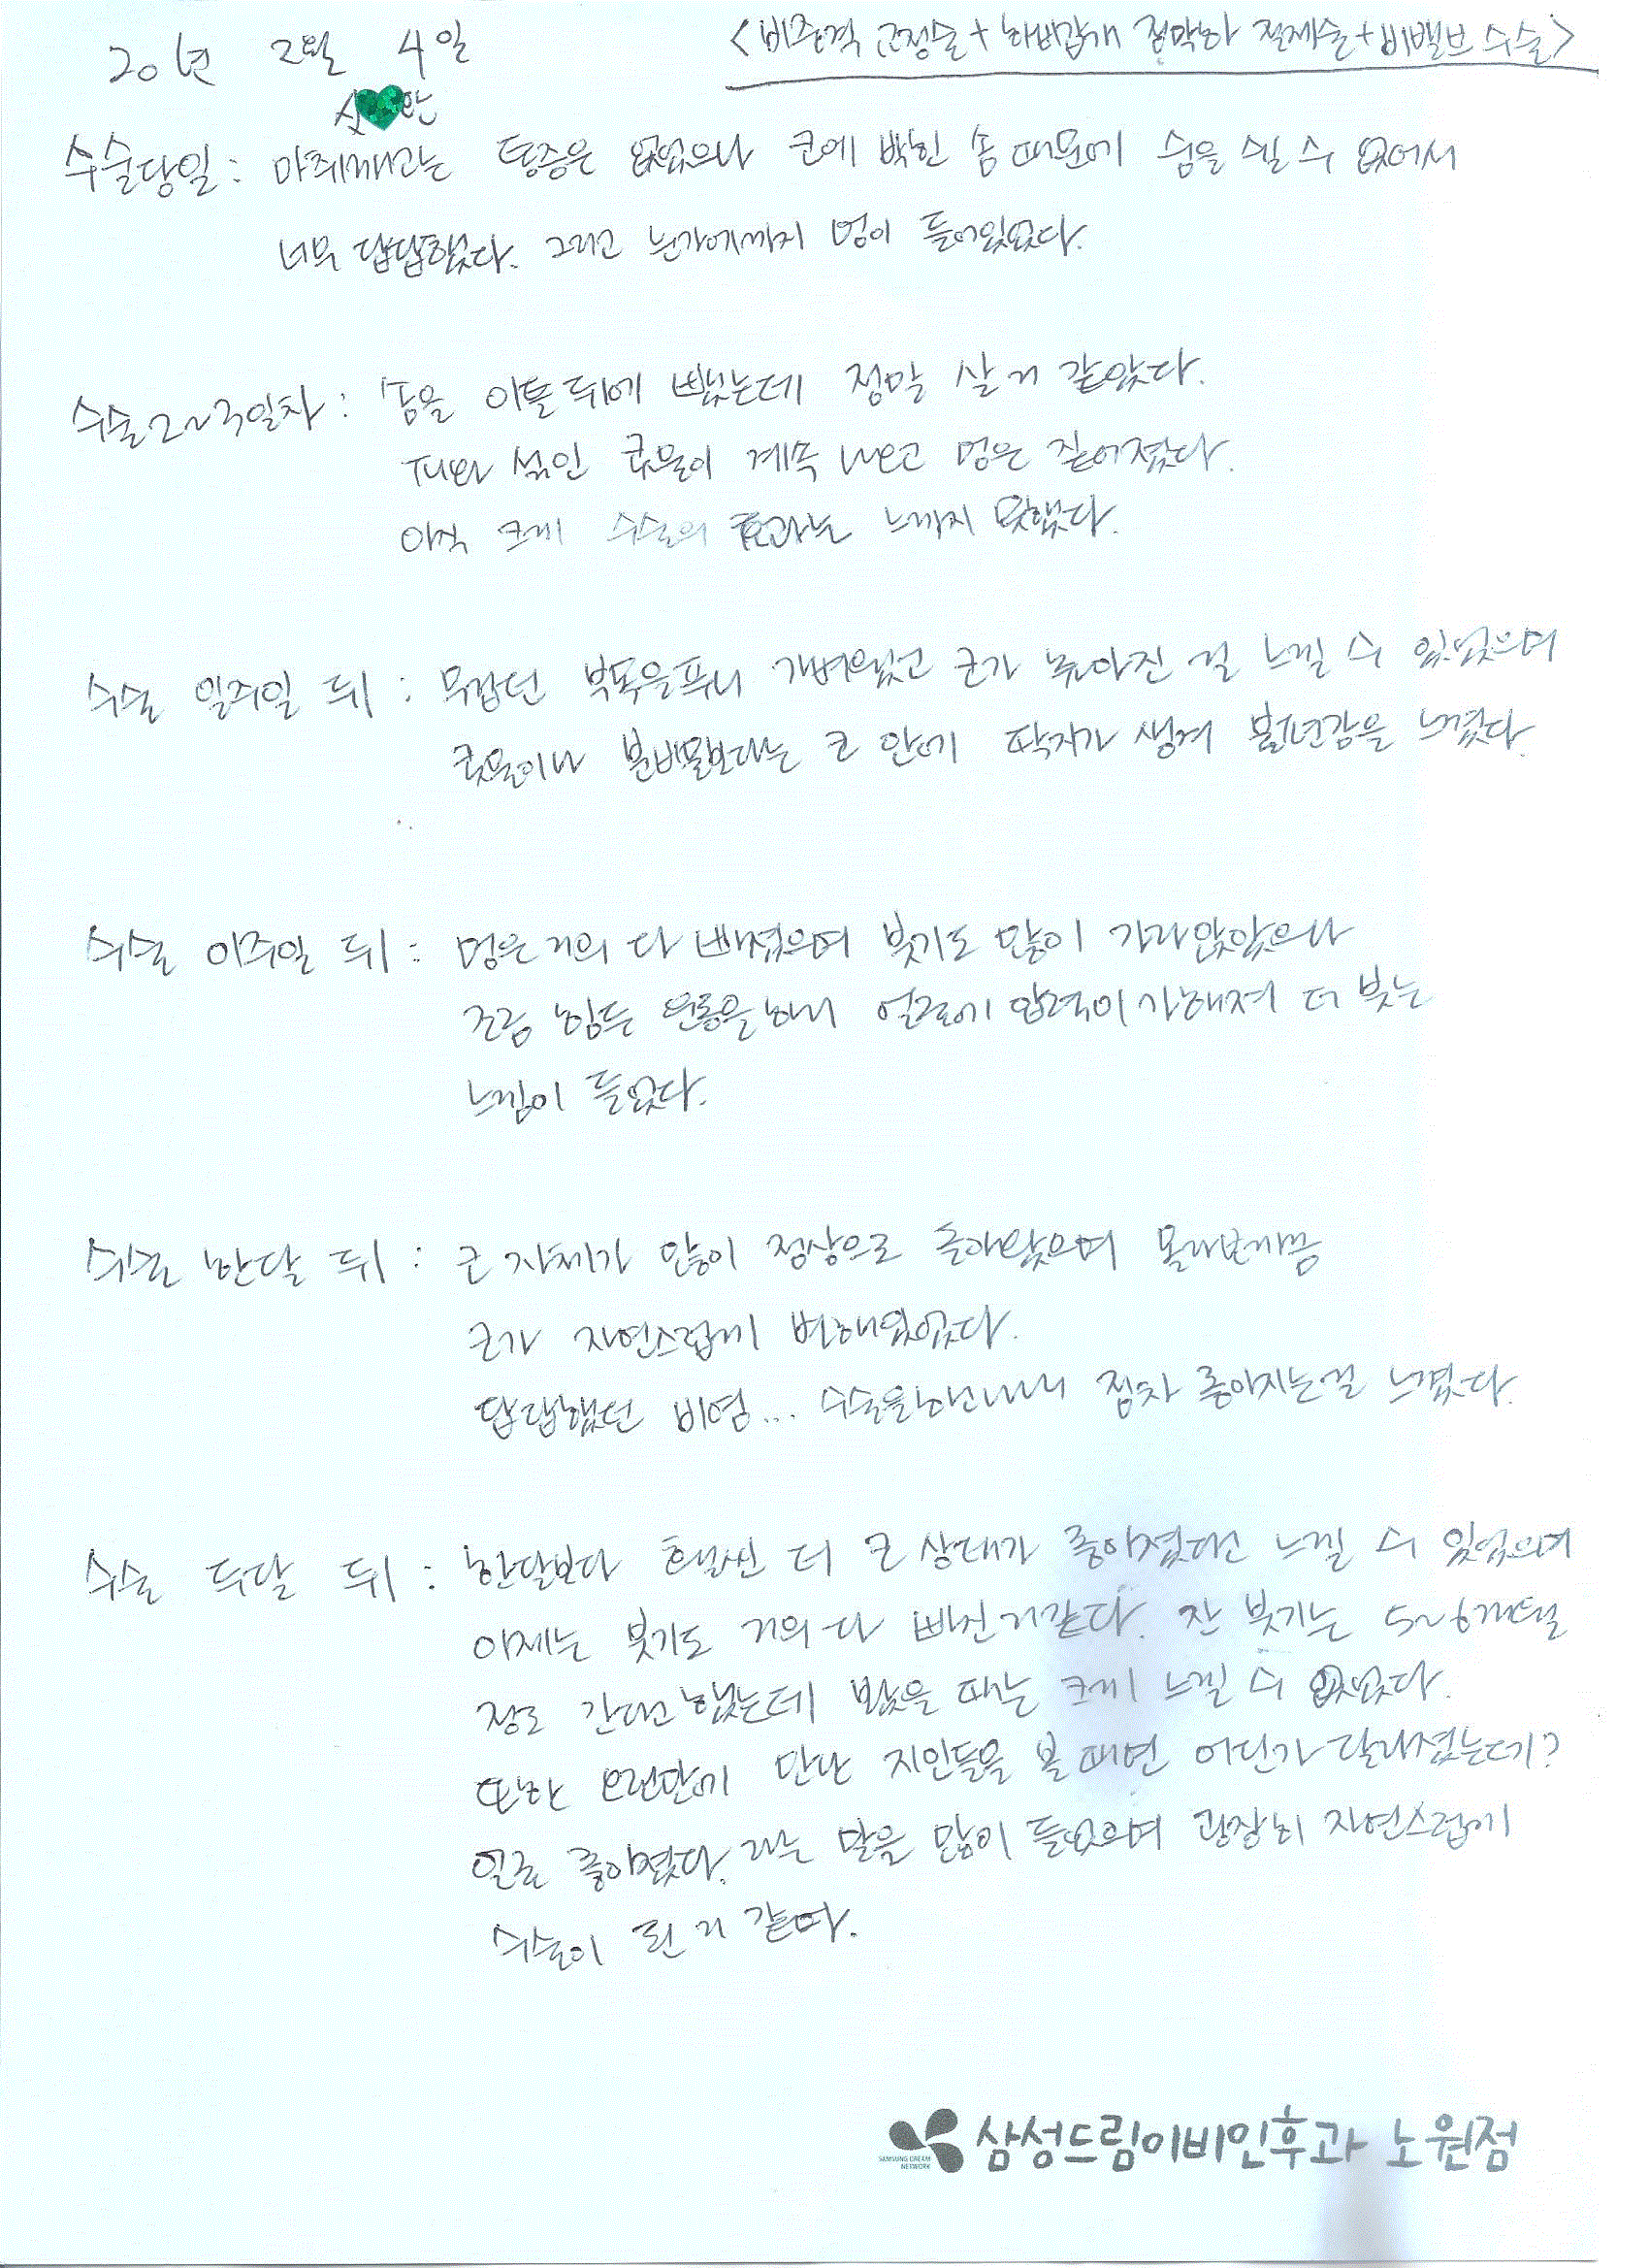 20년 2월 4일
<비중격 교정술+하비갑개 점막하 절제술+비밸브 수술>
수술당일 : 마취깨고는 통증은 없었으나 코에 박힌 솜 때문에 숨을 쉴 수 없어서
너무 답답했다. 그리고 눈가에까지 멍이 들어있었다.
수술2~3일차 : 솜을 이틀 뒤에 뺐는데 정말 살 거 같았다.
피와 섞인 콧물이 계속 나오고 멍은 짙어졌다.
아직 크게 수술의 효과는 느끼지 못했다.
수술 일주일 뒤 : 무겁던 부목을푸니 가벼웠고 코가 높아진 걸 느낄 수 있었으며
콧물이나 분비물보다는 코 안에 딱지가 생겨 불편감을 느꼈다.
수술 이주일 뒤 : 멍은거의 다 빠졌으며 붓기도 많이 가라앉았으나
조금 힘든 운동을하니 얼굴에 압력이가해져 더 붓는
느낌이 들었다.
수술 한달 뒤 : 코 자체가 많이 정상으로 돌아왔으며 몰라보게끔
코가 자연스럽게 변해있었다.
답답했던 비염... 수술을하고나니 점차 좋아지는걸 느꼈다.
수술 두달 뒤 : 한달보다 훨씬 더 코 상태가 좋아졌다고 느낄 수 있었으며
이제는 붓기도 거의 다 빠진거같다. 잔 붓기는 5~6개월
정도 간다고했는데 봤을 때는 크게 느낄 수 없었다.
또한 오랜만에 만난 지인들을 볼때면 어딘가달라졌는데?
얼굴 좋아졌다. 라는 말을 많이 들었으며 굉장히 자연스럽게
수술이 된 거 같다.
SAMSUNG DREAM
NETWORK
삼성드림이비인후과 노원점